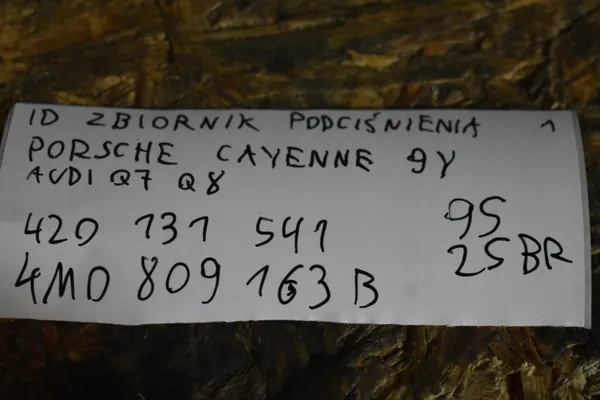 ID ZBIORNIK PODCIŚNIENIA 1
PORSCHE CAYENNE 9Y
AUDI Q7 Q8
420 131 541
4M0 809 163 B
95
25BR